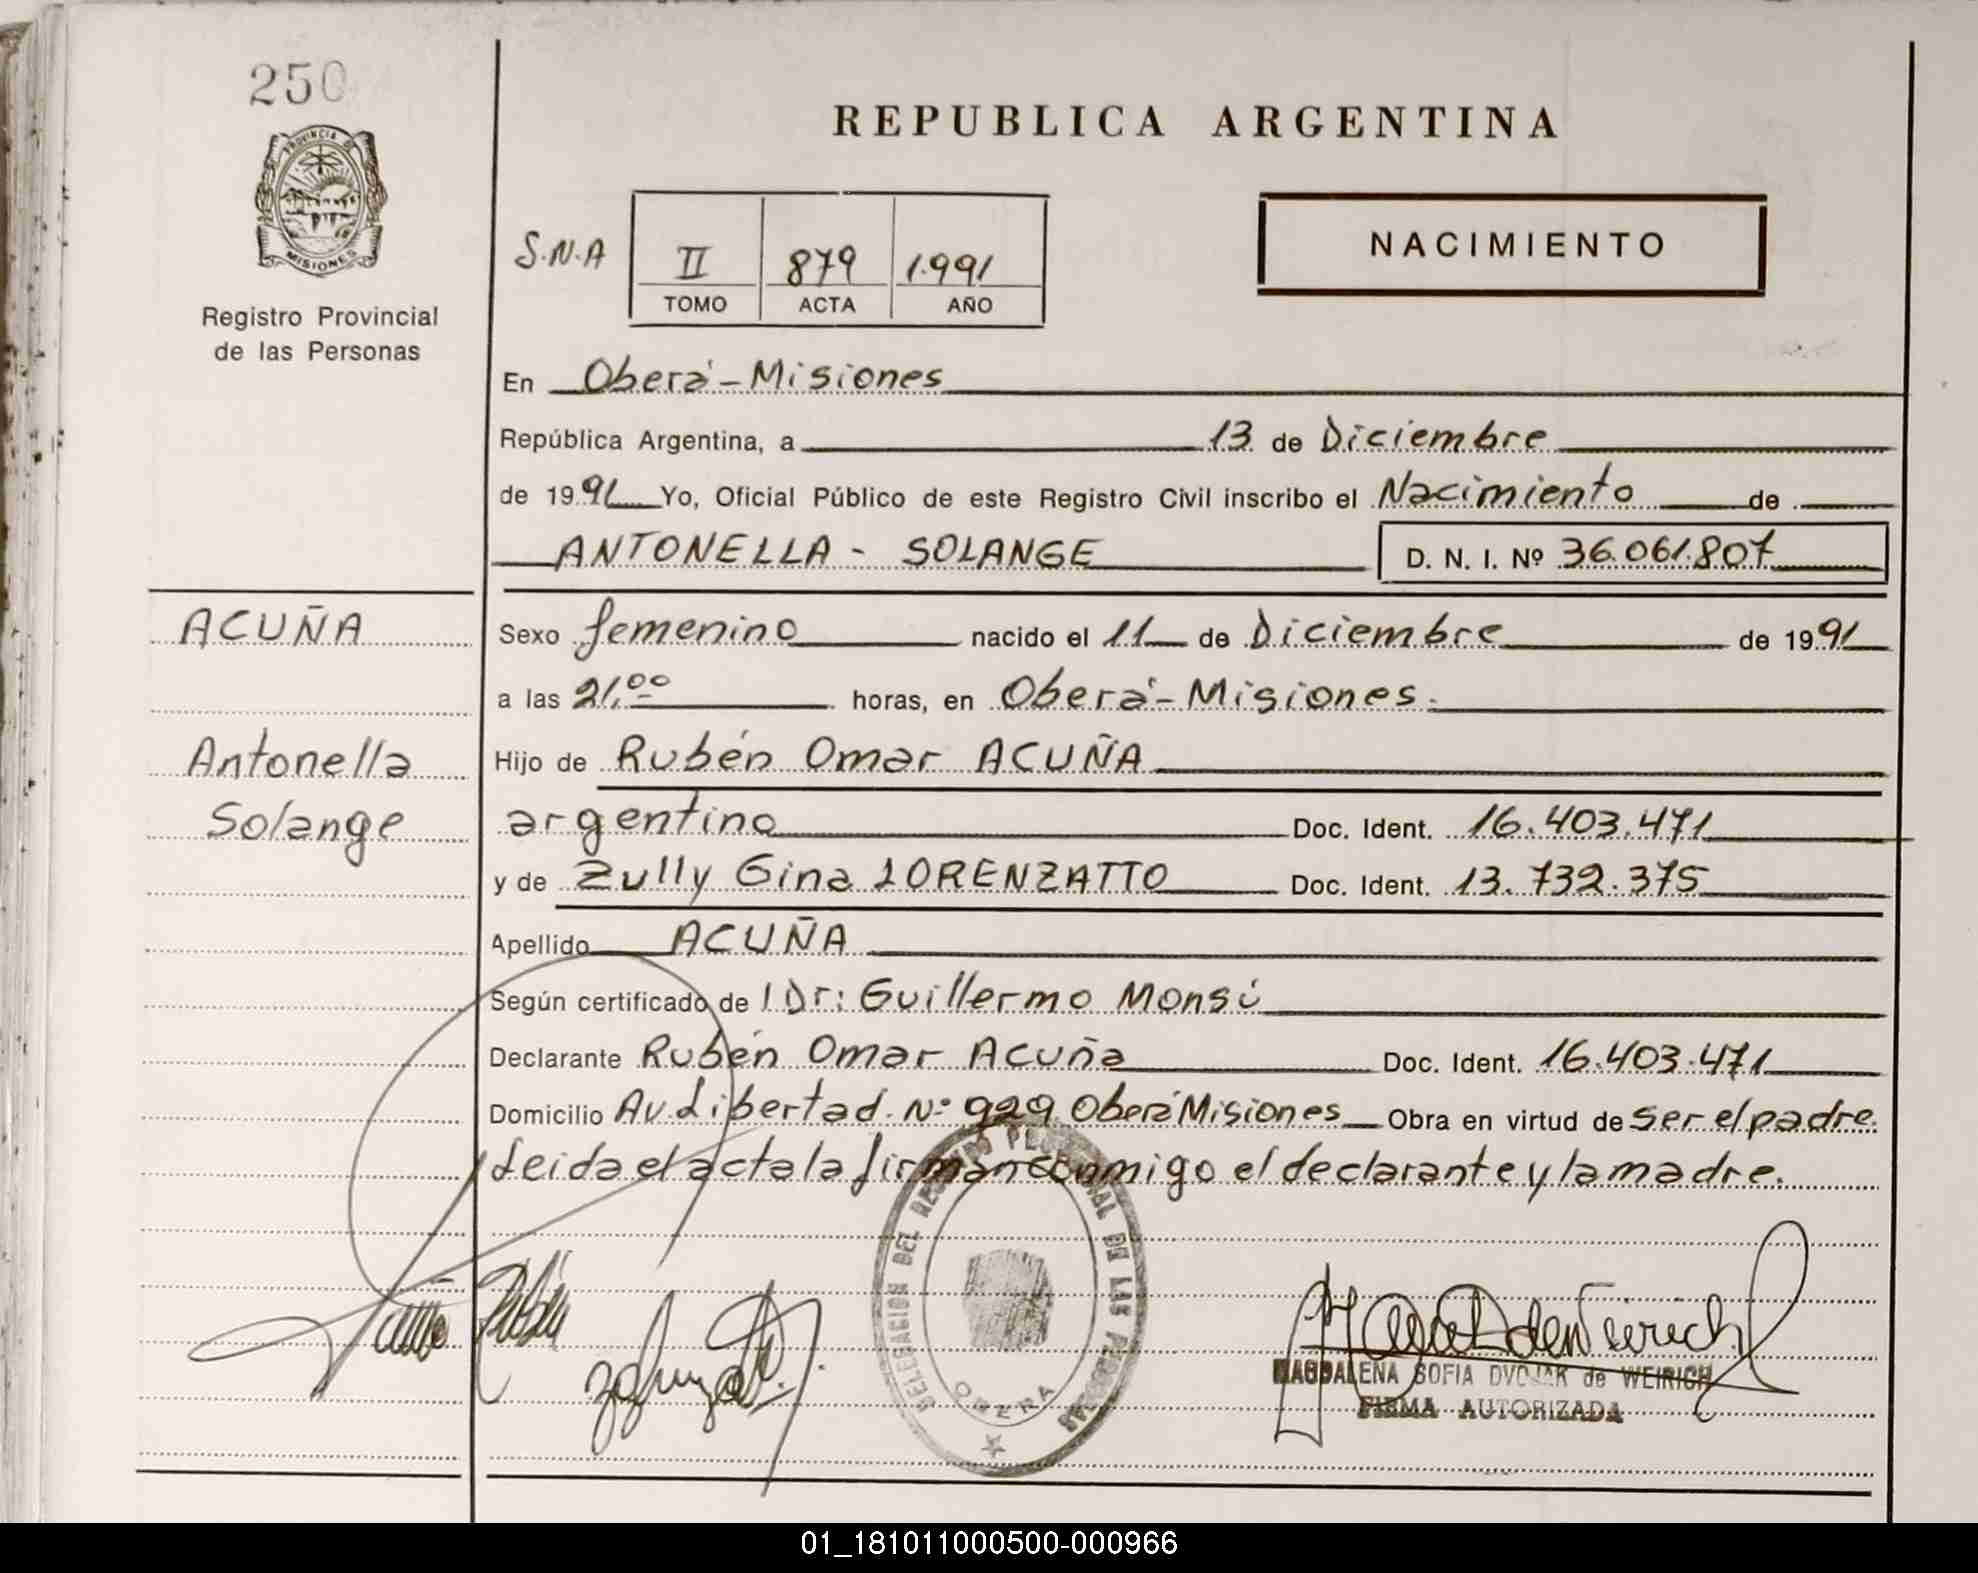 250
PROVINCIA DE
MISIONES
Registro Provincial
de las Personas
REPUBLICA ARGENTINA
S.N.A
II 879 1.991
TOMO ACTA AÑO
NACIMIENTO
En Oberá-Misiones
República Argentina, a 13 de Diciembre
de 1991 Yo, Oficial Público de este Registro Civil inscribo el Nacimiento de
ANTONELLA - SOLANGE D. N. I. Nº 36.061.807
ACUÑA
Antonella
Solange
Sexo femenino nacido el 11 de Diciembre de 1991
a las 21,00 horas, en Oberá-Misiones.
Hijo de Rubén Omar ACUÑA
argentino Doc. Ident. 16.403.471
y de Zully Gina LORENZATTO Doc. Ident. 13.732.375
Apellido ACUÑA
Según certificado de l Dr: Guillermo Monsú
Declarante Rubén Omar Acuña Doc. Ident. 16.403.471
Domicilio Av. Libertad Nº 929 Oberá Misiones Obra en virtud de ser el padre.
Leida el acta la firman conmigo el declarante y la madre.
DELEGACION DEL REGISTRO PROVINCIAL DE LAS PERSONAS
OBERA
Acuña Rubén
M de Weirich
MAGDALENA SOFIA DVOJAK de WEIRICH
FIRMA AUTORIZADA
01_181011000500-000966